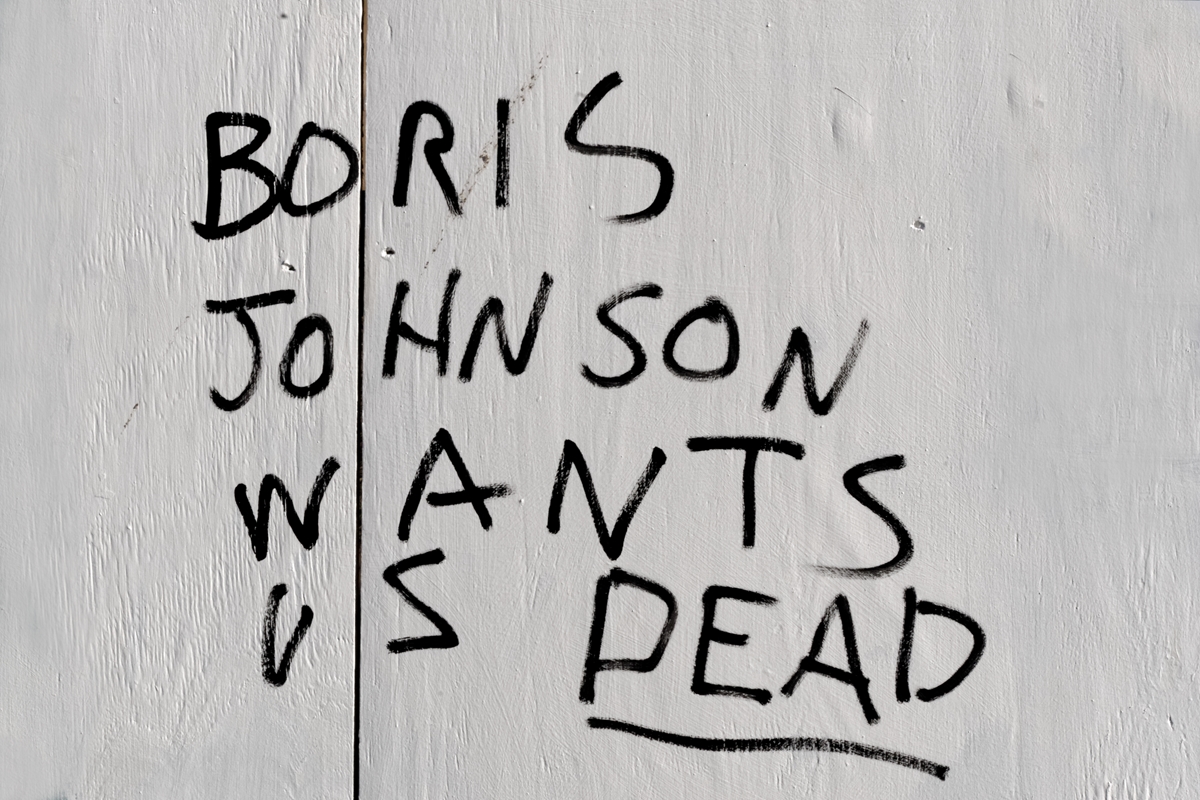 BORIS
JOHNSON
WANTS
US DEAD